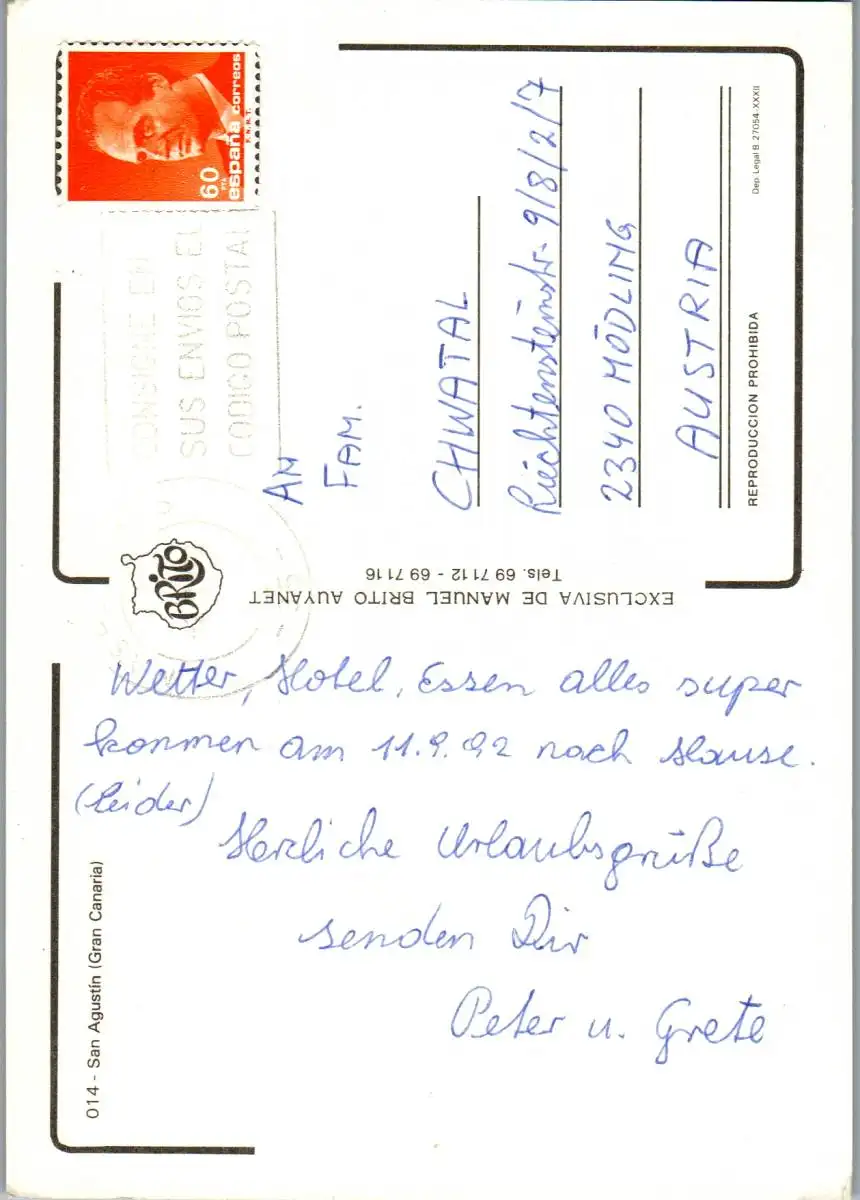 Wetter, Hotel, Essen alles super
kommen am 11.9.92 nach Hause.
(leider)
Herzliche Urlaubsgrüße
senden Dir
Peter u. Grete
014 - San Agustín (Gran Canaria)
EXCLUSIVA DE MANUEL BRITO AUYANET
Tels. 69 71 12 - 69 71 16
BRITO
60 PTA
españa correos
F.N.M.T.
CONSIGNE EN
SUS ENVIOS EL
CODIGO POSTAL
AN
FAM.
CHWATAL
Liechtensteinstr. 9/8/2/7
2340 MÖDLING
AUSTRIA
REPRODUCCION PROHIBIDA
Dep. Legal B. 27054-XXXII